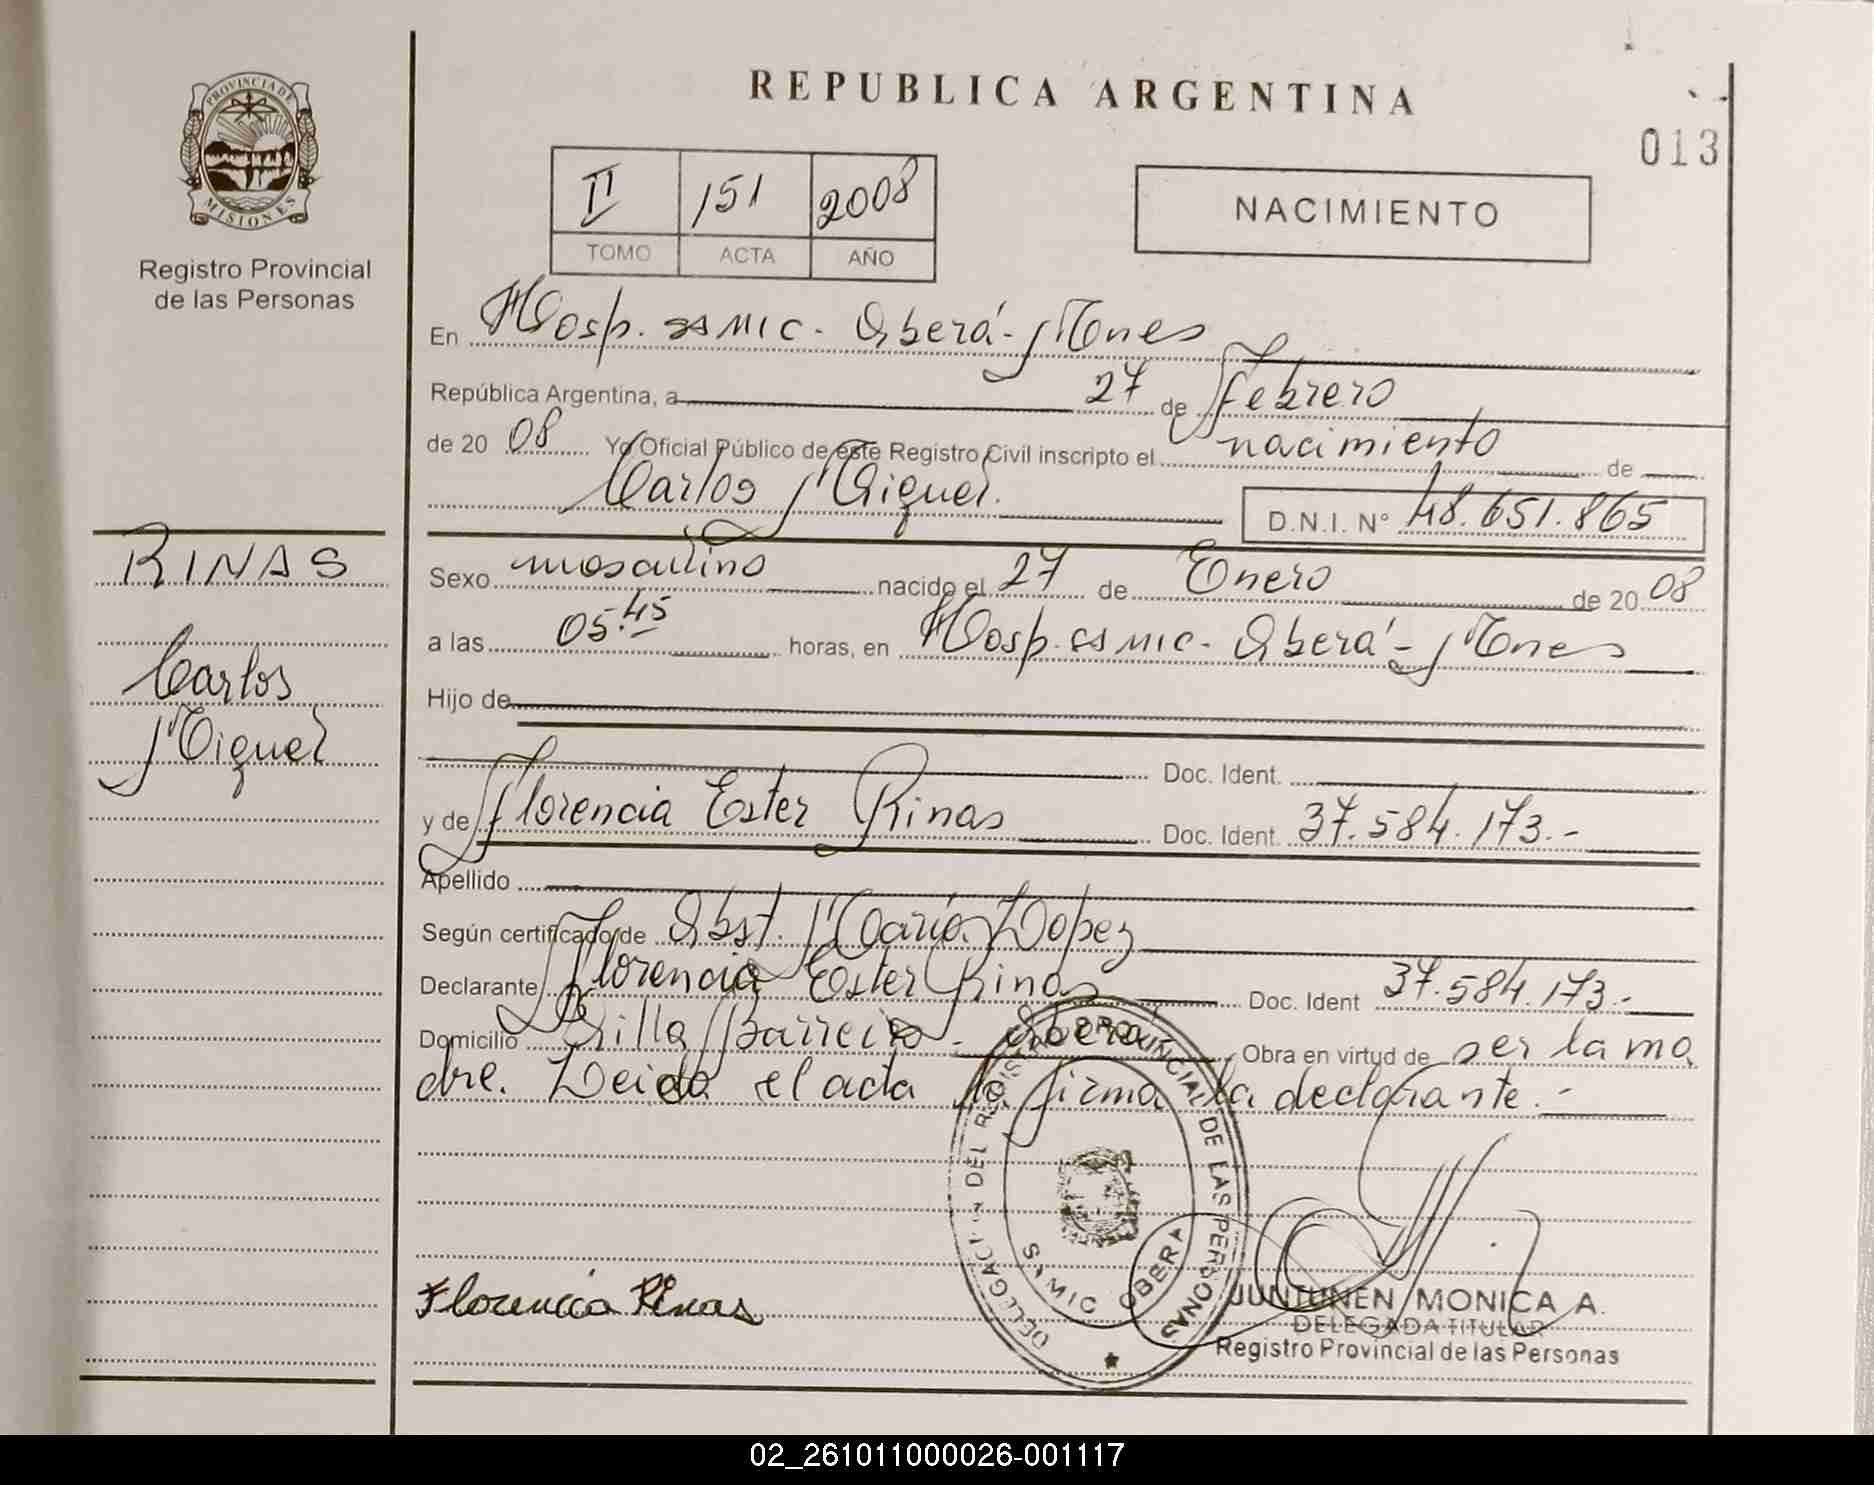 REPUBLICA ARGENTINA
013
PROVINCIA DE
MISIONES
Registro Provincial
de las Personas
II 151 2008
TOMO ACTA AÑO
NACIMIENTO
En Hosp. SAMIC - Oberá - Mnes
República Argentina, a 27 de Febrero
de 20 08 Yo Oficial Público de este Registro Civil inscripto el nacimiento de
Carlos Miguel. D.N.I. N° 48.651.865
RINAS
Carlos
Miguel
Sexo masculino nacido el 27 de Enero de 20 08
a las 05:45 horas, en Hosp. SAMIC - Oberá - Mnes
Hijo de
Doc. Ident.
y de Florencia Ester Rinas Doc. Ident. 37.584.173.-
Apellido
Según certificado de Obst. Mario Lopez
Declarante Florencia Ester Rinas Doc. Ident 37.584.173.-
Domicilio Villa Barreiro - Oberá Obra en virtud de ser la ma
dre. Leida el acta la firma la declarante.-
DELEGACION DEL REGISTRO PROVINCIAL DE LAS PERSONAS
SAMIC OBERA
Florencia Rinas
JUNTUNEN MONICA A.
DELEGADA TITULAR
Registro Provincial de las Personas
02_261011000026-001117